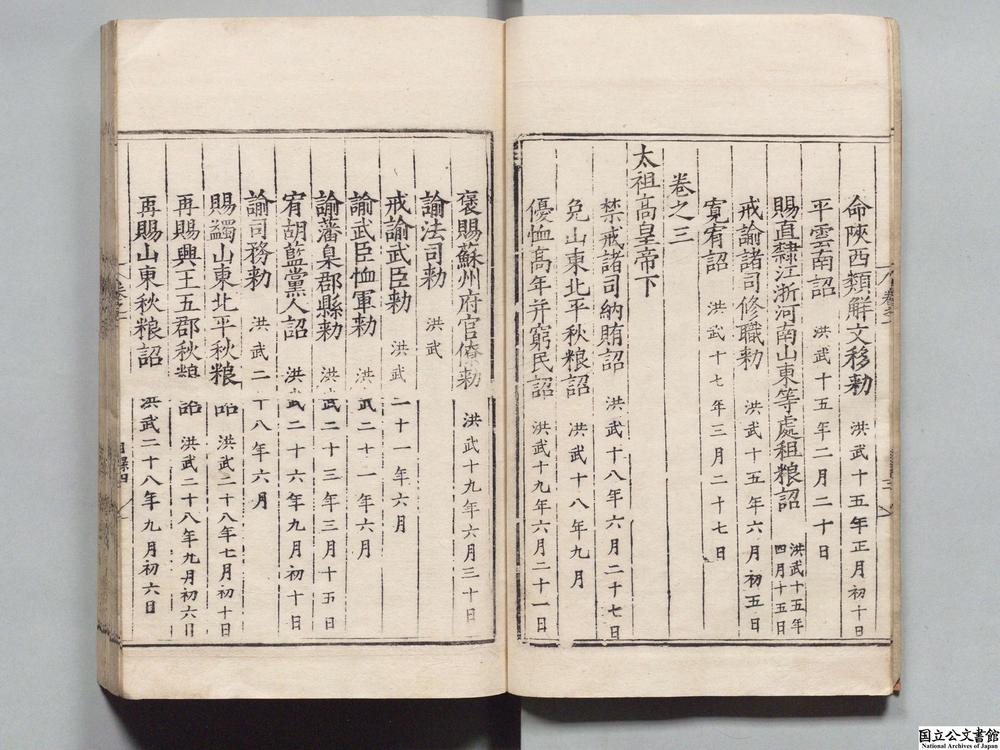 命陝西類解文移勑 洪武十五年正月初十日
平雲南詔 洪武十五年二月二十日
賜直隸江浙河南山東等處租粮詔 洪武十五年四月十五日
戒諭諸司修職勑 洪武十五年六月初五日
寛宥詔 洪武十七年三月二十七日
卷之三
太祖高皇帝下
禁戒諸司納賄詔 洪武十八年六月二十七日
免山東北平秋粮詔 洪武十八年九月
優恤高年并窮民詔 洪武十九年六月二十一日
褒賜蘇州府官僚勑 洪武十九年六月三十日
諭法司勑 洪武
戒諭武臣勑 洪武二十一年六月
諭武臣恤軍勑 洪武二十一年六月
諭藩臬郡縣勑 洪武二十三年三月十五日
宥胡藍黨人詔 洪武二十六年九月初十日
諭司務勑 洪武二十八年六月
賜蠲山東北平秋粮詔 洪武二十八年七月初十日
再賜興王五郡秋粮詔 洪武二十八年九月初六日
再賜山東秋粮詔 洪武二十八年九月初六日
目録四
国立公文書館
National Archives of Japan